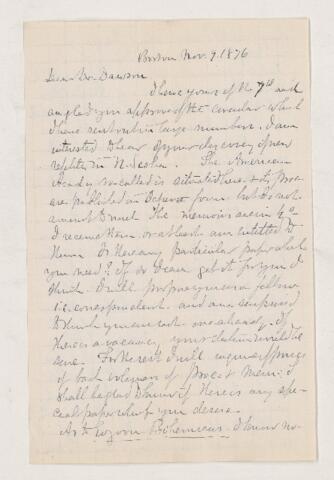 Boston Nov. 9. 1876
Dear Dr. Dawson
I have yours of the 7th and
am glad you approve of the circular which
I have sent out in large numbers. I am
interested to hear of your discovery of new
reptiles in N. Scotia. The American
Academy so called is situated here - its Proc
are published in Octavo form but do not
amount to much. The memoirs are in 4to
I receive them or at least am entitled to
them. Is there any particular paper which
you need? If so I can get it for you I
think. I will propose you as a fellow
i.e. correspondent and am surprised
to think you are not one already. If
there is a vacancy your election will be
sure. For the rest I will enquire prices
of back volumes of Proc & Mem: I
shall be glad to know if there is any spe-
cial paper which you desire.
As to Eozoon Bohemicus - I know no-